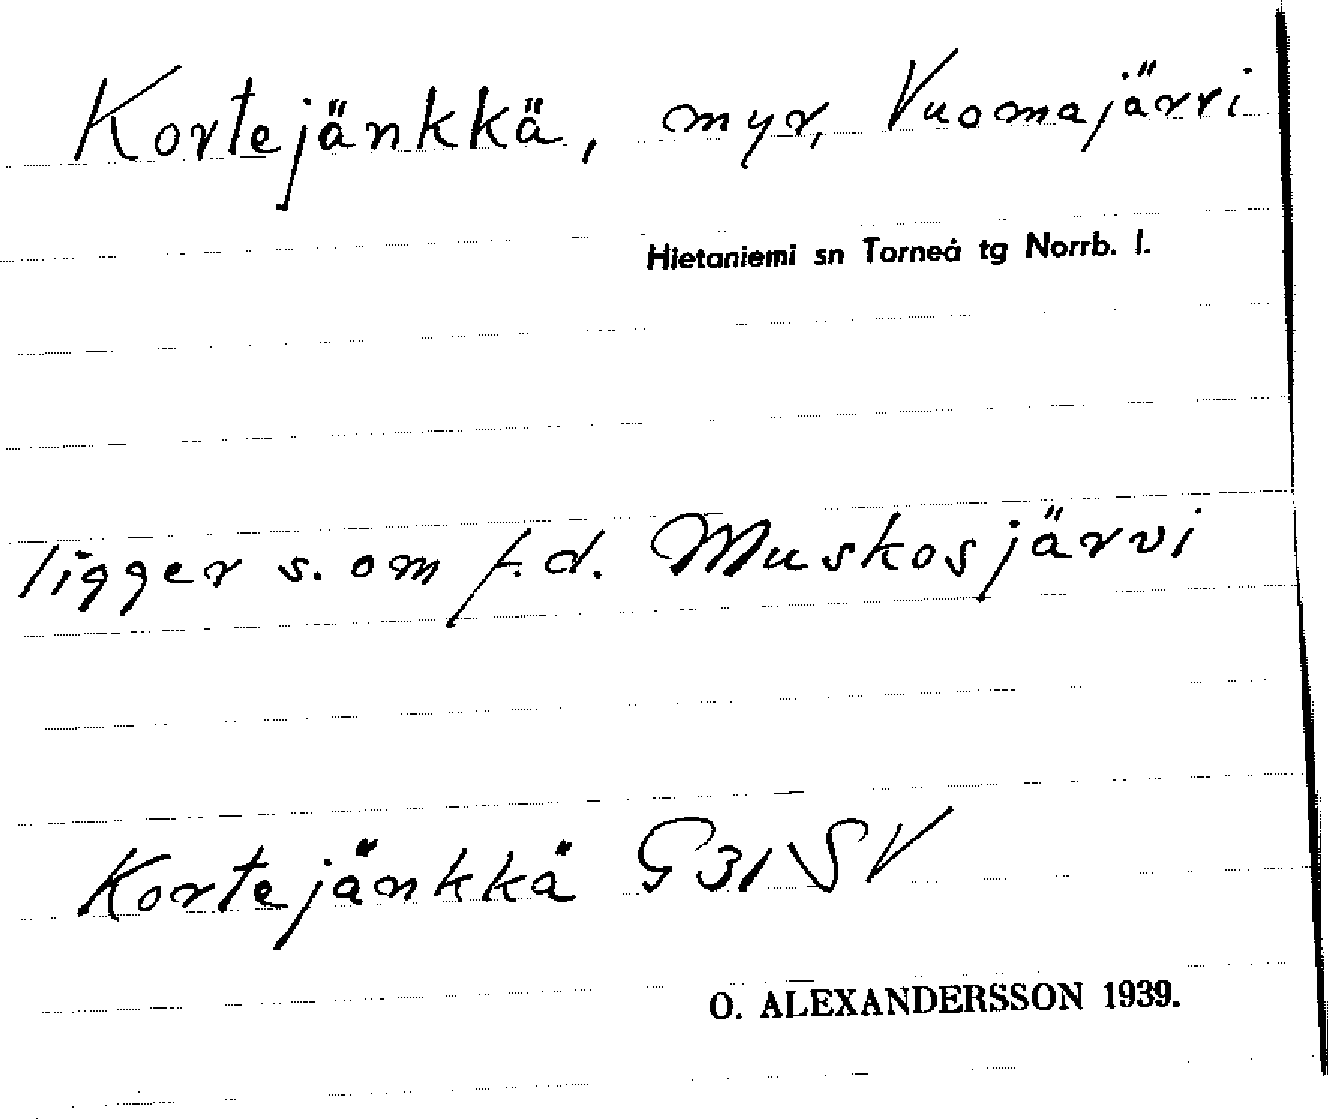 Kortejänkkä, myr, Vuomajärvi
Hietaniemi sn Torneå tg Norrb. l.
ligger s. om f.d. Muskosjärvi
Kortejänkkä G 31 SV
O. ALEXANDERSSON 1939.